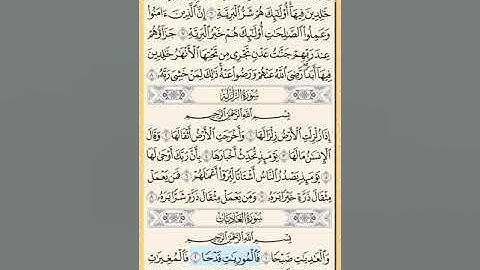 خَٰلِدِينَ فِيهَآ أُوْلَٰٓئِكَ هُمْ شَرُّ ٱلْبَرِيَّةِ ٦ إِنَّ ٱلَّذِينَ ءَامَنُوا۟
وَعَمِلُوا۟ ٱلصَّٰلِحَٰتِ أُوْلَٰٓئِكَ هُمْ خَيْرُ ٱلْبَرِيَّةِ ٧ جَزَآؤُهُمْ
عِندَ رَبِّهِمْ جَنَّٰتُ عَدْنٍ تَجْرِى مِن تَحْتِهَا ٱلْأَنْهَٰرُ خَٰلِدِينَ
فِيهَآ أَبَدًا رَّضِىَ ٱللَّهُ عَنْهُمْ وَرَضُوا۟ عَنْهُ ذَٰلِكَ لِمَنْ خَشِىَ رَبَّهُۥ ٨
سُورَةُ الزَّلْزَلَةِ
بِسْمِ ٱللَّهِ ٱلرَّحْمَٰنِ ٱلرَّحِيمِ
إِذَا زُلْزِلَتِ ٱلْأَرْضُ زِلْزَالَهَا ١ وَأَخْرَجَتِ ٱلْأَرْضُ أَثْقَالَهَا ٢ وَقَالَ
ٱلْإِنسَٰنُ مَا لَهَا ٣ يَوْمَئِذٍ تُحَدِّثُ أَخْبَارَهَا ٤ بِأَنَّ رَبَّكَ أَوْحَىٰ لَهَا
٥ يَوْمَئِذٍ يَصْدُرُ ٱلنَّاسُ أَشْتَاتًا لِّيُرَوْا۟ أَعْمَٰلَهُمْ ٦ فَمَن يَعْمَلْ
مِثْقَالَ ذَرَّةٍ خَيْرًا يَرَهُۥ ٧ وَمَن يَعْمَلْ مِثْقَالَ ذَرَّةٍ شَرًّا يَرَهُۥ ٨
سُورَةُ العَادِيَاتِ
بِسْمِ ٱللَّهِ ٱلرَّحْمَٰنِ ٱلرَّحِيمِ
وَٱلْعَٰدِيَٰتِ ضَبْحًا ١ فَٱلْمُورِيَٰتِ قَدْحًا ٢ فَٱلْمُغِيرَٰتِ